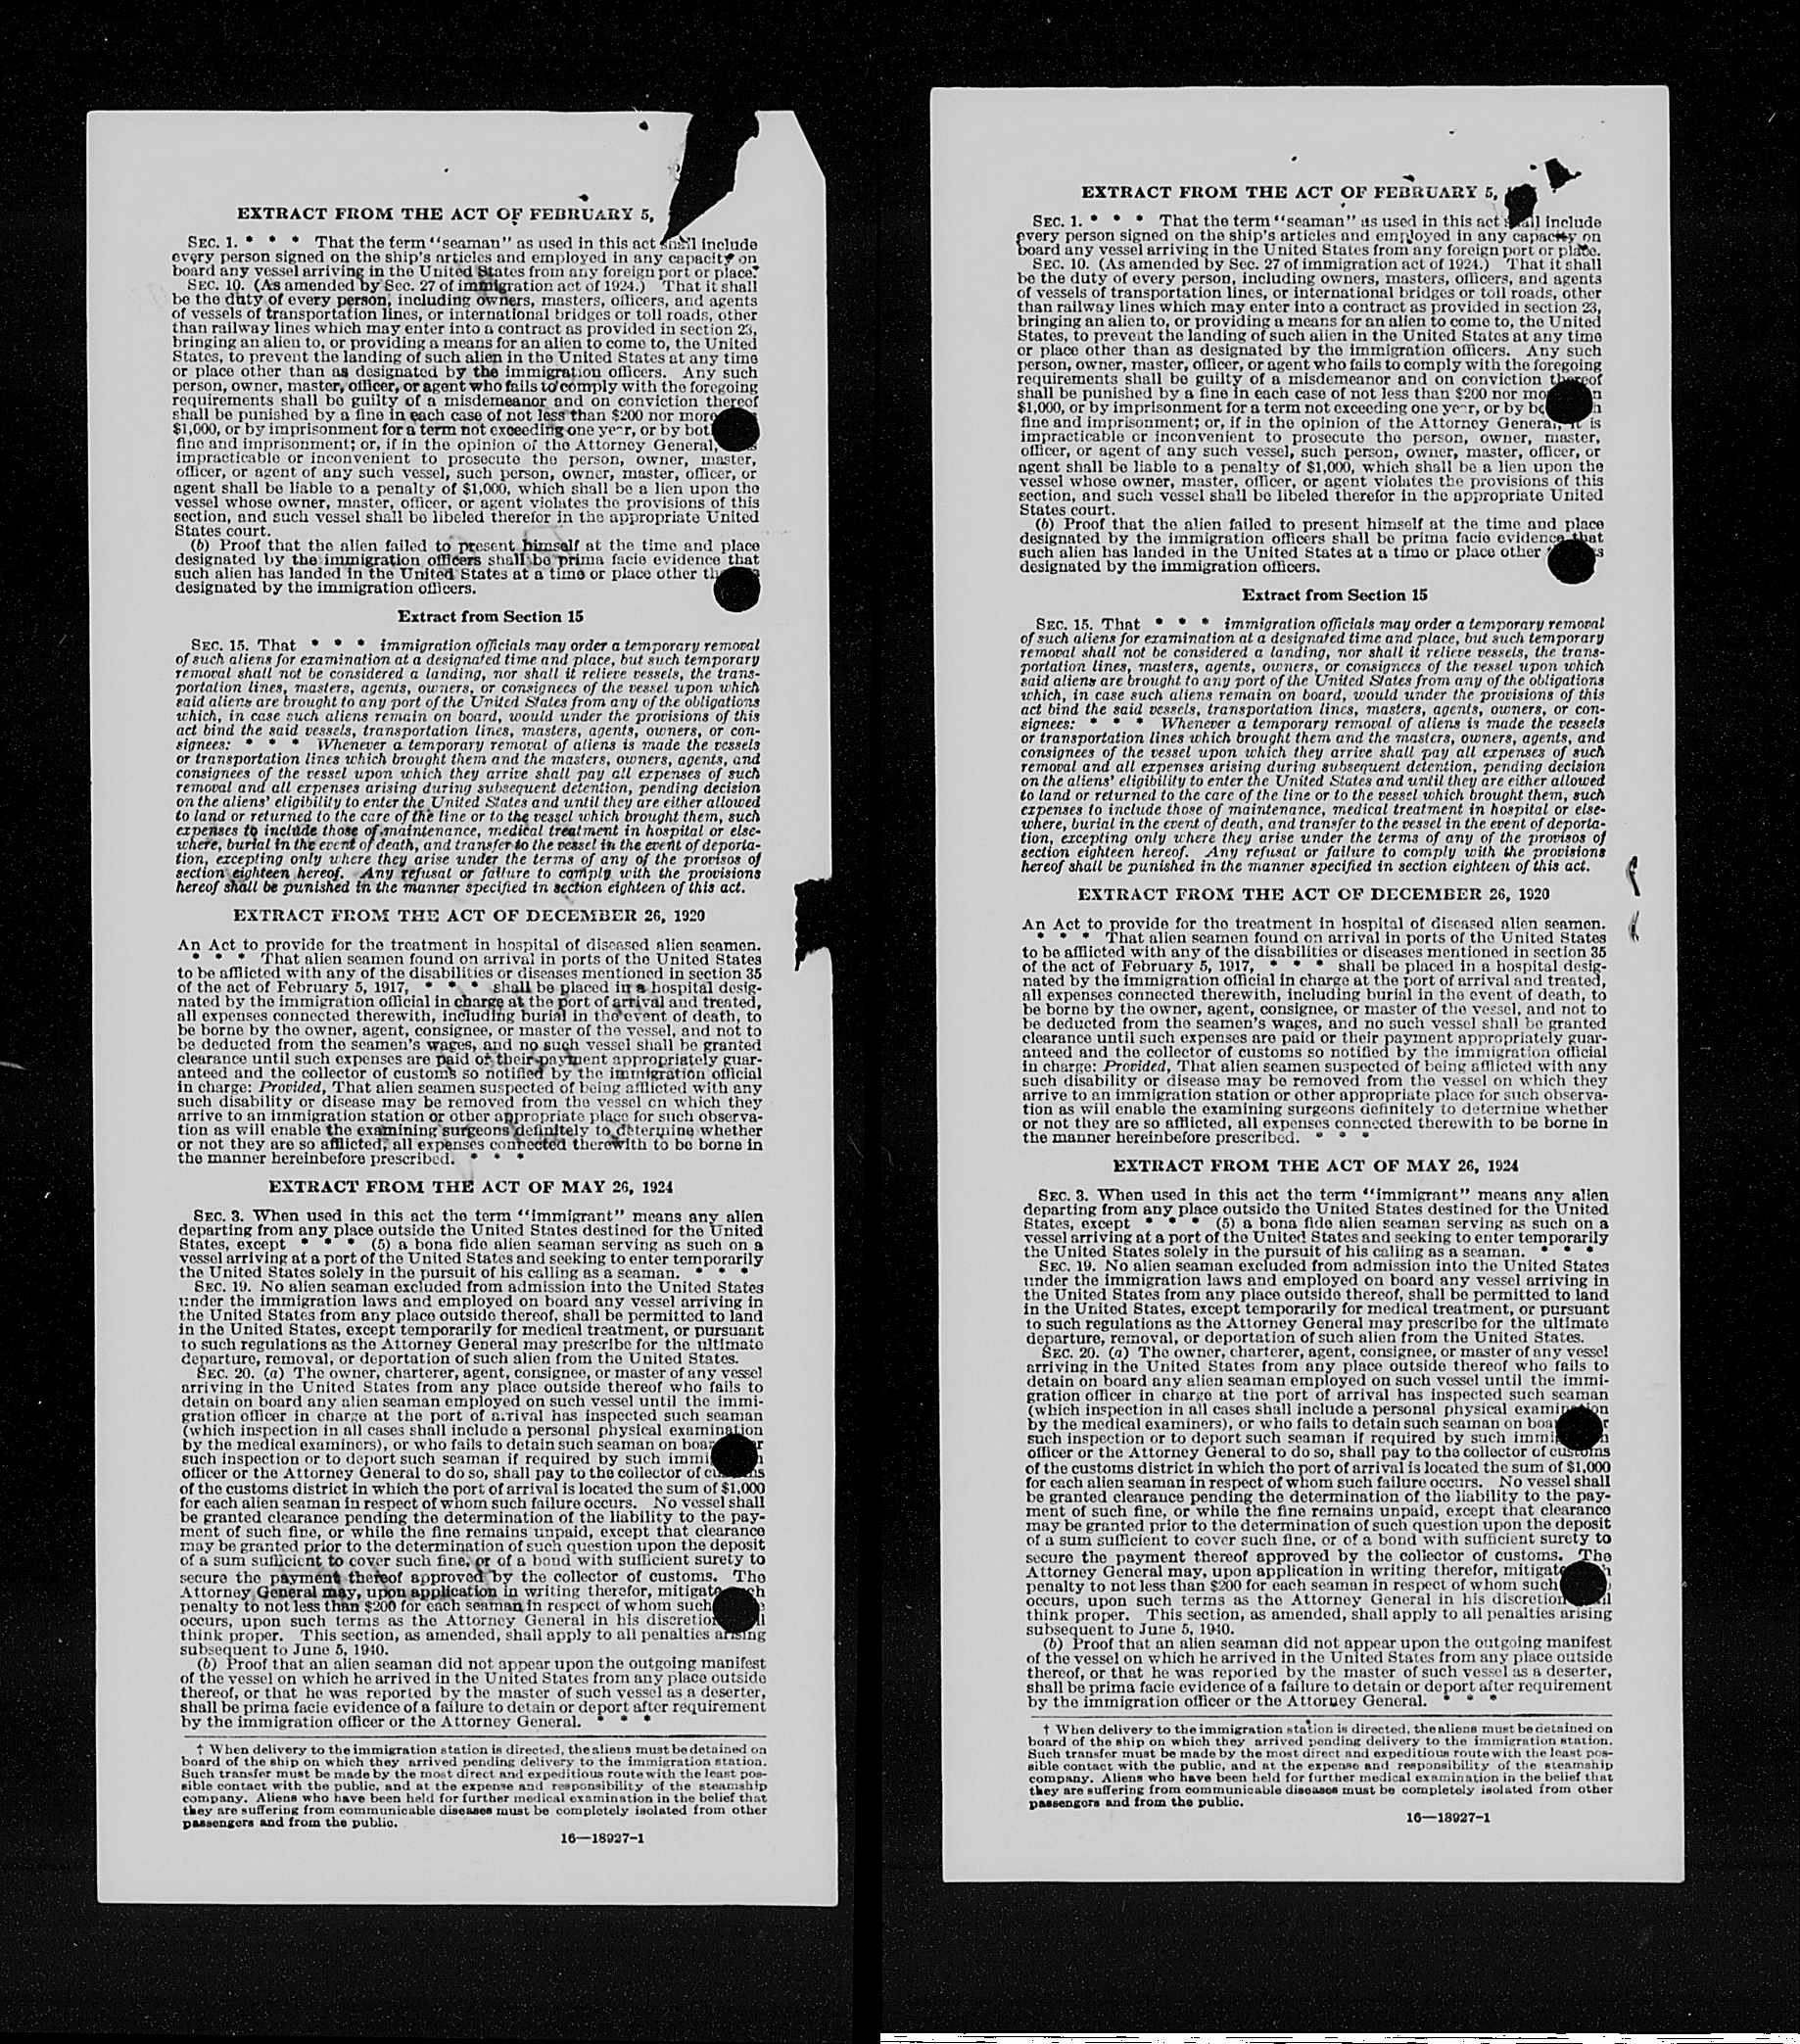 EXTRACT FROM THE ACT OF FEBRUARY 5,
SEC. 1. * * * That the term "seaman" as used in this act shall include
every person signed on the ship's articles and employed in any capacity on
board any vessel arriving in the United States from any foreign port or place.
SEC. 10. (As amended by Sec. 27 of immigration act of 1924.) That it shall
be the duty of every person, including owners, masters, officers, and agents
of vessels of transportation lines, or international bridges or toll roads, other
than railway lines which may enter into a contract as provided in section 23,
bringing an alien to, or providing a means for an alien to come to, the United
States, to prevent the landing of such alien in the United States at any time
or place other than as designated by the immigration officers. Any such
person, owner, master, officer, or agent who fails to comply with the foregoing
requirements shall be guilty of a misdemeanor and on conviction thereof
shall be punished by a fine in each case of not less than $200 nor more
$1,000, or by imprisonment for a term not exceeding one year, or by bot
fine and imprisonment; or, if in the opinion of the Attorney General,
impracticable or inconvenient to prosecute the person, owner, master,
officer, or agent of any such vessel, such person, owner, master, officer, or
agent shall be liable to a penalty of $1,000, which shall be a lien upon the
vessel whose owner, master, officer, or agent violates the provisions of this
section, and such vessel shall be libeled therefor in the appropriate United
States court.
(b) Proof that the alien failed to present himself at the time and place
designated by the immigration officers shall be prima facie evidence that
such alien has landed in the United States at a time or place other th
designated by the immigration officers.
Extract from Section 15
SEC. 15. That * * * immigration officials may order a temporary removal
of such aliens for examination at a designated time and place, but such temporary
removal shall not be considered a landing, nor shall it relieve vessels, the trans-
portation lines, masters, agents, owners, or consignees of the vessel upon which
said aliens are brought to any port of the United States from any of the obligations
which, in case such aliens remain on board, would under the provisions of this
act bind the said vessels, transportation lines, masters, agents, owners, or con-
signees: * * * Whenever a temporary removal of aliens is made the vessels
or transportation lines which brought them and the masters, owners, agents, and
consignees of the vessel upon which they arrive shall pay all expenses of such
removal and all expenses arising during subsequent detention, pending decision
on the aliens' eligibility to enter the United States and until they are either allowed
to land or returned to the care of the line or to the vessel which brought them, such
expenses to include those of maintenance, medical treatment in hospital or else-
where, burial in the event of death, and transfer to the vessel in the event of deporta-
tion, excepting only where they arise under the terms of any of the provisos of
section eighteen hereof. Any refusal or failure to comply with the provisions
hereof shall be punished in the manner specified in section eighteen of this act.
EXTRACT FROM THE ACT OF DECEMBER 26, 1920
An Act to provide for the treatment in hospital of diseased alien seamen.
* * * That alien seamen found on arrival in ports of the United States
to be afflicted with any of the disabilities or diseases mentioned in section 35
of the act of February 5, 1917, * * * shall be placed in a hospital desig-
nated by the immigration official in charge at the port of arrival and treated,
all expenses connected therewith, including burial in the event of death, to
be borne by the owner, agent, consignee, or master of the vessel, and not to
be deducted from the seamen's wages, and no such vessel shall be granted
clearance until such expenses are paid or their payment appropriately guar-
anteed and the collector of customs so notified by the immigration official
in charge: Provided, That alien seamen suspected of being afflicted with any
such disability or disease may be removed from the vessel on which they
arrive to an immigration station or other appropriate place for such observa-
tion as will enable the examining surgeons definitely to determine whether
or not they are so afflicted, all expenses connected therewith to be borne in
the manner hereinbefore prescribed. * * *
EXTRACT FROM THE ACT OF MAY 26, 1924
SEC. 3. When used in this act the term "immigrant" means any alien
departing from any place outside the United States destined for the United
States, except * * * (5) a bona fide alien seaman serving as such on a
vessel arriving at a port of the United States and seeking to enter temporarily
the United States solely in the pursuit of his calling as a seaman. * * *
SEC. 19. No alien seaman excluded from admission into the United States
under the immigration laws and employed on board any vessel arriving in
the United States from any place outside thereof, shall be permitted to land
in the United States, except temporarily for medical treatment, or pursuant
to such regulations as the Attorney General may prescribe for the ultimate
departure, removal, or deportation of such alien from the United States.
SEC. 20. (a) The owner, charterer, agent, consignee, or master of any vessel
arriving in the United States from any place outside thereof who fails to
detain on board any alien seaman employed on such vessel until the immi-
gration officer in charge at the port of arrival has inspected such seaman
(which inspection in all cases shall include a personal physical examination
by the medical examiners), or who fails to detain such seaman on boar
such inspection or to deport such seaman if required by such immi
officer or the Attorney General to do so, shall pay to the collector of customs
of the customs district in which the port of arrival is located the sum of $1,000
for each alien seaman in respect of whom such failure occurs. No vessel shall
be granted clearance pending the determination of the liability to the pay-
ment of such fine, or while the fine remains unpaid, except that clearance
may be granted prior to the determination of such question upon the deposit
of a sum sufficient to cover such fine, or of a bond with sufficient surety to
secure the payment thereof approved by the collector of customs. The
Attorney General may, upon application in writing therefor, mitigate
penalty to not less than $200 for each seaman in respect of whom such
occurs, upon such terms as the Attorney General in his discretion
think proper. This section, as amended, shall apply to all penalties arising
subsequent to June 5, 1940.
(b) Proof that an alien seaman did not appear upon the outgoing manifest
of the vessel on which he arrived in the United States from any place outside
thereof, or that he was reported by the master of such vessel as a deserter,
shall be prima facie evidence of a failure to detain or deport after requirement
by the immigration officer or the Attorney General. * * *
† When delivery to the immigration station is directed, the aliens must be detained on
board of the ship on which they arrived pending delivery to the immigration station.
Such transfer must be made by the most direct and expeditious route with the least pos-
sible contact with the public, and at the expense and responsibility of the steamship
company. Aliens who have been held for further medical examination in the belief that
they are suffering from communicable diseases must be completely isolated from other
passengers and from the public.
16—18927-1
EXTRACT FROM THE ACT OF FEBRUARY 5,
SEC. 1. * * * That the term "seaman" as used in this act shall include
every person signed on the ship's articles and employed in any capacity on
board any vessel arriving in the United States from any foreign port or place.
SEC. 10. (As amended by Sec. 27 of immigration act of 1924.) That it shall
be the duty of every person, including owners, masters, officers, and agents
of vessels of transportation lines, or international bridges or toll roads, other
than railway lines which may enter into a contract as provided in section 23,
bringing an alien to, or providing a means for an alien to come to, the United
States, to prevent the landing of such alien in the United States at any time
or place other than as designated by the immigration officers. Any such
person, owner, master, officer, or agent who fails to comply with the foregoing
requirements shall be guilty of a misdemeanor and on conviction thereof
shall be punished by a fine in each case of not less than $200 nor mo
$1,000, or by imprisonment for a term not exceeding one year, or by bo
fine and imprisonment; or, if in the opinion of the Attorney General, it is
impracticable or inconvenient to prosecute the person, owner, master,
officer, or agent of any such vessel, such person, owner, master, officer, or
agent shall be liable to a penalty of $1,000, which shall be a lien upon the
vessel whose owner, master, officer, or agent violates the provisions of this
section, and such vessel shall be libeled therefor in the appropriate United
States court.
(b) Proof that the alien failed to present himself at the time and place
designated by the immigration officers shall be prima facie evidence that
such alien has landed in the United States at a time or place other
designated by the immigration officers.
Extract from Section 15
SEC. 15. That * * * immigration officials may order a temporary removal
of such aliens for examination at a designated time and place, but such temporary
removal shall not be considered a landing, nor shall it relieve vessels, the trans-
portation lines, masters, agents, owners, or consignees of the vessel upon which
said aliens are brought to any port of the United States from any of the obligations
which, in case such aliens remain on board, would under the provisions of this
act bind the said vessels, transportation lines, masters, agents, owners, or con-
signees: * * * Whenever a temporary removal of aliens is made the vessels
or transportation lines which brought them and the masters, owners, agents, and
consignees of the vessel upon which they arrive shall pay all expenses of such
removal and all expenses arising during subsequent detention, pending decision
on the aliens' eligibility to enter the United States and until they are either allowed
to land or returned to the care of the line or to the vessel which brought them, such
expenses to include those of maintenance, medical treatment in hospital or else-
where, burial in the event of death, and transfer to the vessel in the event of deporta-
tion, excepting only where they arise under the terms of any of the provisos of
section eighteen hereof. Any refusal or failure to comply with the provisions
hereof shall be punished in the manner specified in section eighteen of this act.
EXTRACT FROM THE ACT OF DECEMBER 26, 1920
An Act to provide for the treatment in hospital of diseased alien seamen.
* * * That alien seamen found on arrival in ports of the United States
to be afflicted with any of the disabilities or diseases mentioned in section 35
of the act of February 5, 1917, * * * shall be placed in a hospital desig-
nated by the immigration official in charge at the port of arrival and treated,
all expenses connected therewith, including burial in the event of death, to
be borne by the owner, agent, consignee, or master of the vessel, and not to
be deducted from the seamen's wages, and no such vessel shall be granted
clearance until such expenses are paid or their payment appropriately guar-
anteed and the collector of customs so notified by the immigration official
in charge: Provided, That alien seamen suspected of being afflicted with any
such disability or disease may be removed from the vessel on which they
arrive to an immigration station or other appropriate place for such observa-
tion as will enable the examining surgeons definitely to determine whether
or not they are so afflicted, all expenses connected therewith to be borne in
the manner hereinbefore prescribed. * * *
EXTRACT FROM THE ACT OF MAY 26, 1924
SEC. 3. When used in this act the term "immigrant" means any alien
departing from any place outside the United States destined for the United
States, except * * * (5) a bona fide alien seaman serving as such on a
vessel arriving at a port of the United States and seeking to enter temporarily
the United States solely in the pursuit of his calling as a seaman. * * *
SEC. 19. No alien seaman excluded from admission into the United States
under the immigration laws and employed on board any vessel arriving in
the United States from any place outside thereof, shall be permitted to land
in the United States, except temporarily for medical treatment, or pursuant
to such regulations as the Attorney General may prescribe for the ultimate
departure, removal, or deportation of such alien from the United States.
SEC. 20. (a) The owner, charterer, agent, consignee, or master of any vessel
arriving in the United States from any place outside thereof who fails to
detain on board any alien seaman employed on such vessel until the immi-
gration officer in charge at the port of arrival has inspected such seaman
(which inspection in all cases shall include a personal physical examination
by the medical examiners), or who fails to detain such seaman on boa
such inspection or to deport such seaman if required by such immi
officer or the Attorney General to do so, shall pay to the collector of customs
of the customs district in which the port of arrival is located the sum of $1,000
for each alien seaman in respect of whom such failure occurs. No vessel shall
be granted clearance pending the determination of the liability to the pay-
ment of such fine, or while the fine remains unpaid, except that clearance
may be granted prior to the determination of such question upon the deposit
of a sum sufficient to cover such fine, or of a bond with sufficient surety to
secure the payment thereof approved by the collector of customs. The
Attorney General may, upon application in writing therefor, mitigate
penalty to not less than $200 for each seaman in respect of whom such
occurs, upon such terms as the Attorney General in his discretion
think proper. This section, as amended, shall apply to all penalties arising
subsequent to June 5, 1940.
(b) Proof that an alien seaman did not appear upon the outgoing manifest
of the vessel on which he arrived in the United States from any place outside
thereof, or that he was reported by the master of such vessel as a deserter,
shall be prima facie evidence of a failure to detain or deport after requirement
by the immigration officer or the Attorney General. * * *
† When delivery to the immigration station is directed, the aliens must be detained on
board of the ship on which they arrived pending delivery to the immigration station.
Such transfer must be made by the most direct and expeditious route with the least pos-
sible contact with the public, and at the expense and responsibility of the steamship
company. Aliens who have been held for further medical examination in the belief that
they are suffering from communicable diseases must be completely isolated from other
passengers and from the public.
16—18927-1